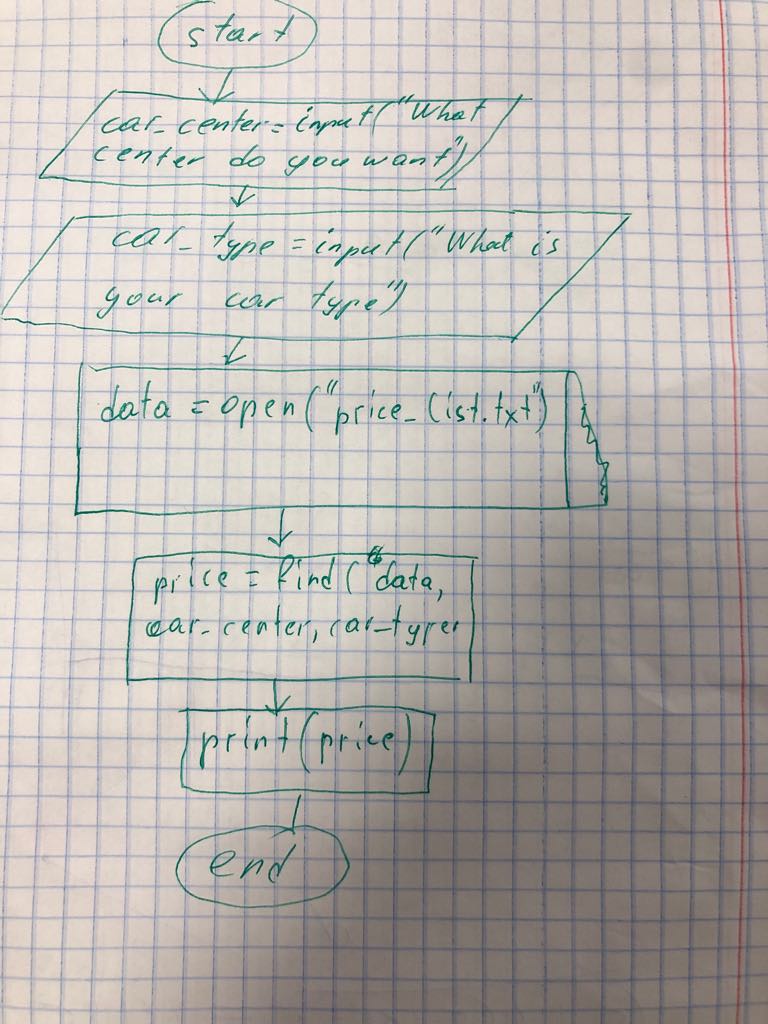 start
car_center=input("What
center do you want")
car_type=input("What is
your car type")
data = open("price_list.txt")
price = find("data,
car_center, car_type
print(price)
end